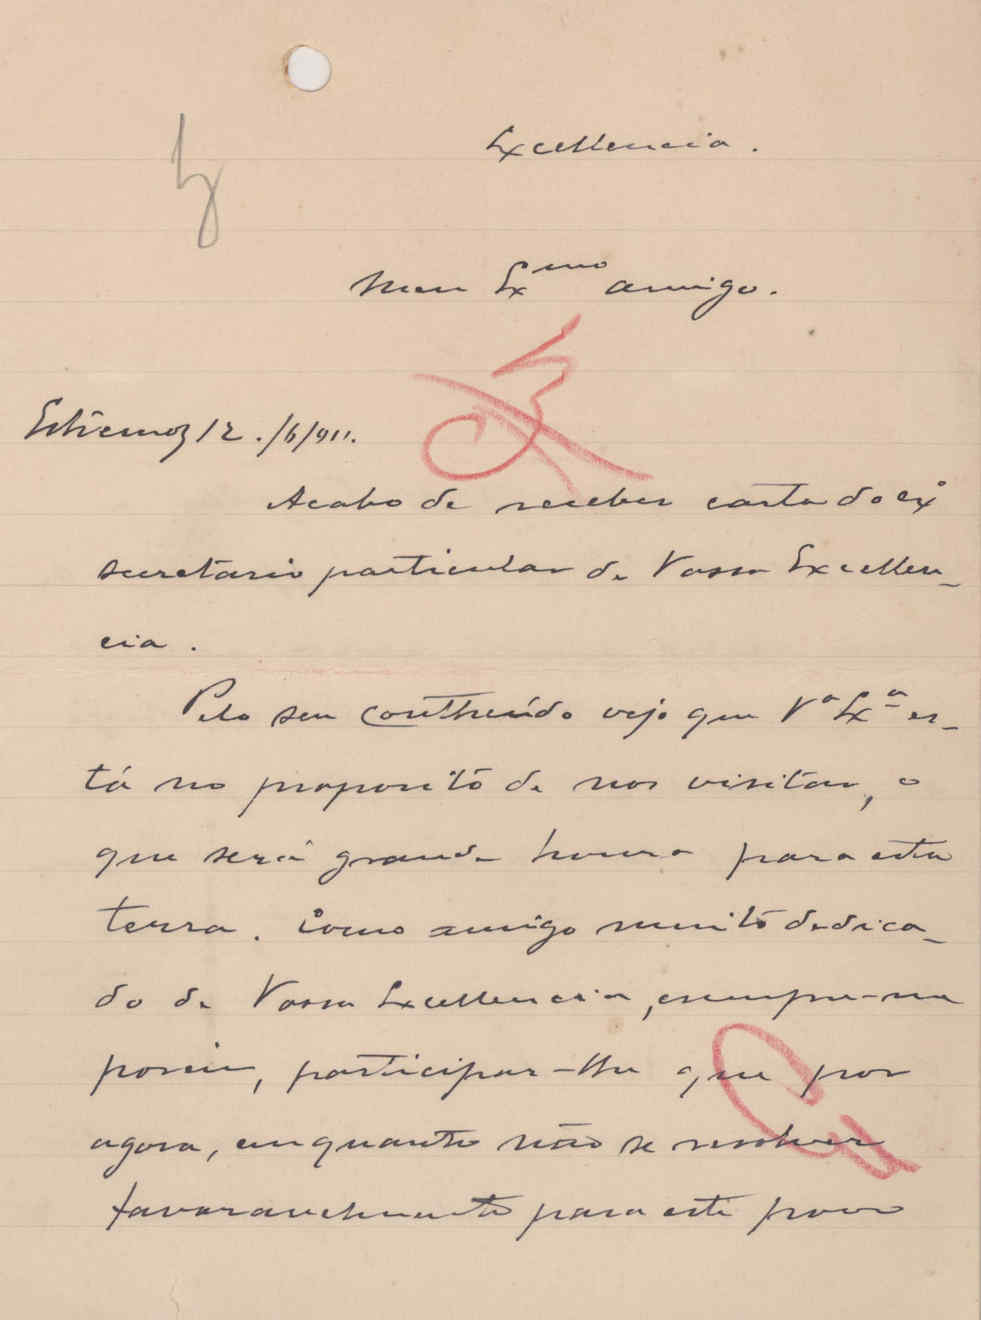 Excellencia.
Meu Ex.mo amigo.
Estremoz 12./6/911.
Acabo de receber carta do exº
secretario particular de Vossa Excellen-
cia.
Pelo seu contheúdo vejo que Vª Exª es-
tá no proposito de nos visitar, o
que será grande honra para esta
terra. Como amigo muito dedica-
do de Vossa Excellencia, cumpre-me
porém, participar-lhe que por
agora, emquanto não se resolver
favoravelmente para este povo